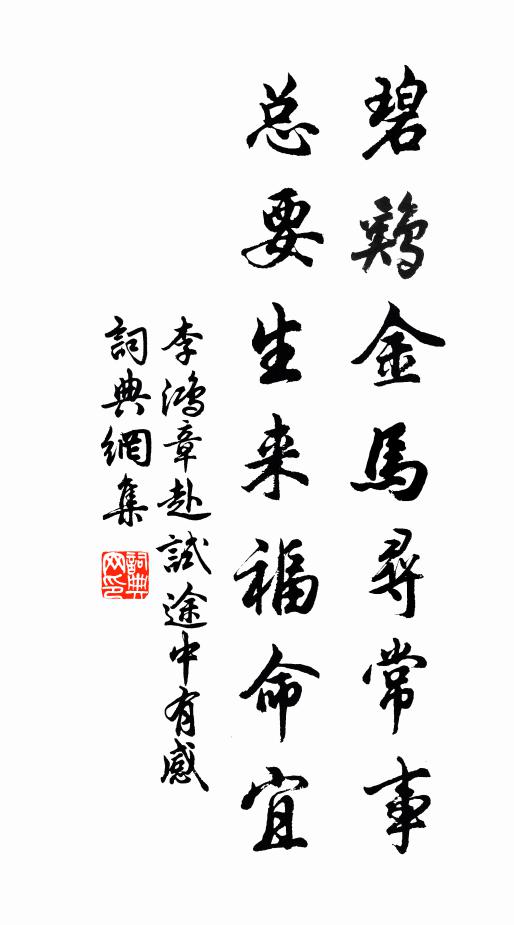 碧鷄金馬尋常事
总要生来福命宜
李鴻章赴試途中有感
詞典網集
詞典網印